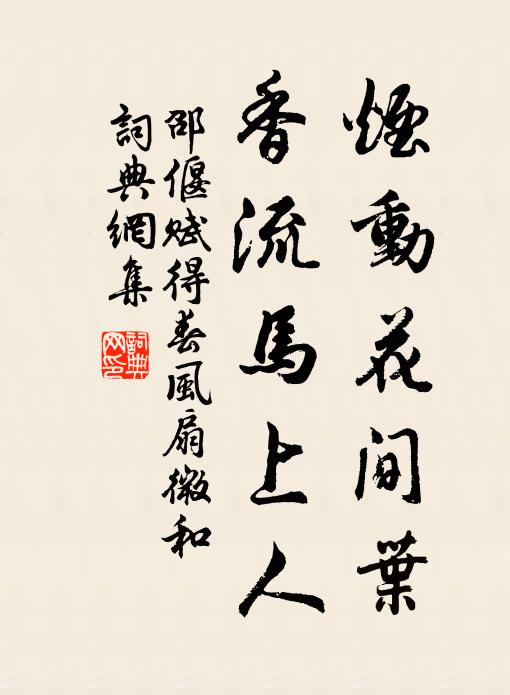 煙動花間葉
香流馬上人
邵偃賦得春風扇微和
詞典網集
詞典网印